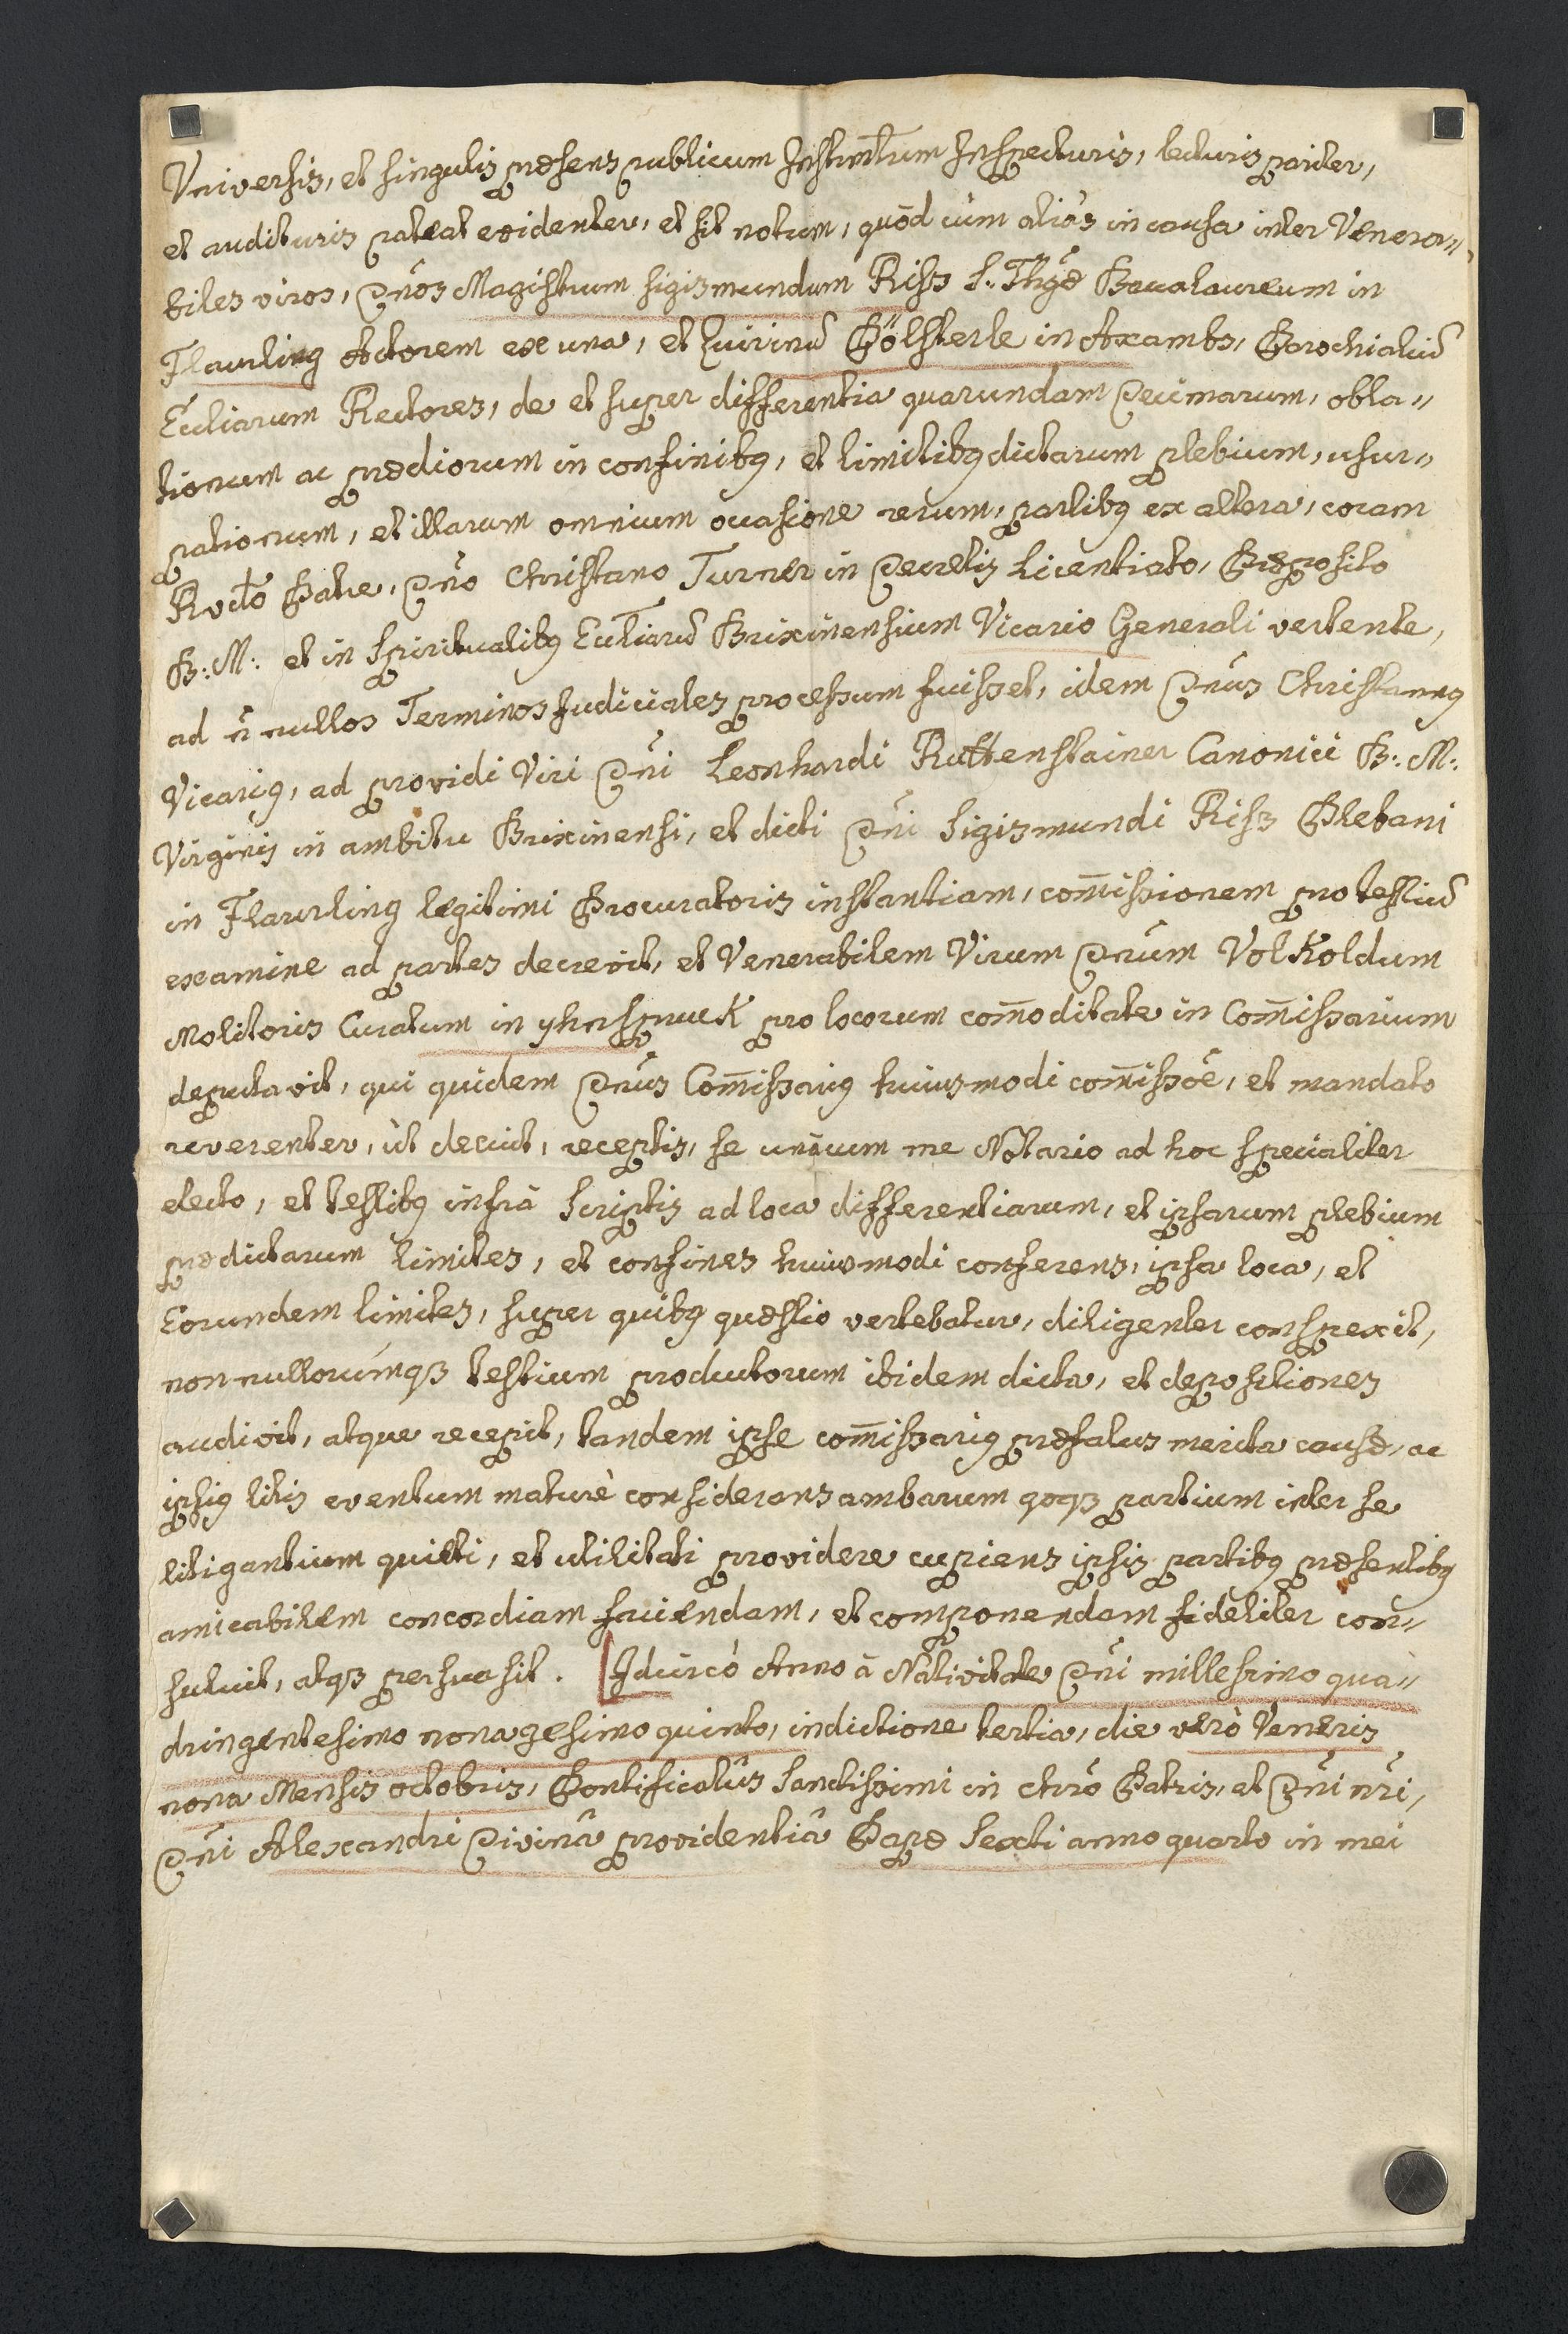 Vniversis, et singulis præsens publicum Instrm̄tum Inspecturis, lecturis pariter,
et audituris pateat evidenter, et sit notum, quòd cùm aliàs in causa inter Venera=
biles viros, Dños Magistrum Sigismundum Riss S. Thgæ Baccalaureum in
Flaurling Actorem ex una, et Quirinũ Gölsterle in Axambs, Parochialiũ
Eccliarum Rectores, de et super differentia quarundam Decimarum, obla=
tionum ac prædiorum in confinibg, et limitibg dictarum plebium, usur=
pationum, et illarum omnium occasione rerum, partibg ex altera, coram
Rvdo Patre, Dño Christano Turner in Decretis Licentiato, Præposito
B: M: et in Spiritualibg Eccliarũ Brixinensium Vicario Generali vertente,
ad ñ nullos Terminos Judiciales processum fuisset, idem Dñus Christanng
Vicarig, ad providi Viri Dñi Leonhardi Rottenstainer Canonici B: M:
Virginis in ambitu Brixinensi, et dicti Dñi Sigismundi Riss Plebani
in Flaurling legitimi Procuratoris instantiam, com̄issionem pro testiũ
examine ad partes decrevit, et Venerabilem Virum Dñum Volkoldum
Molitoris Curatum in yhnspruck pro locorum com̄oditate in Com̄issarium
deputavit, qui quidem Dñus Com̄issarig huiusmodi com̄issõe, et mandato
reverenter, ùt decuit, receptis, se unàcum me Notario ad hoc specialiter
electo, et testibg infrà scriptis ad loca differentiarum, et ipsarum plebium
prædictarum limites, et confines huiusmodi conferens, ipsa loca, et
Eorundem limites, super quibg quæstio vertebatur, diligenter conspexit,
non nullorúmqз testium productorum ibidem dicta, et depositiones
audivit, atque recepit, tandem ipse com̄issarig præfatus merita causæ, ac
ipsig litis eventum maturè considerans ambarum qoqз partium inter se
litigantium quieti, et utilitati providere cupiens ipsis partibg præsentibg
amicabilem concordiam faciendam, et componendam fideliter con=
suluit, atqз persuasit. Idcircò Anno à Nativitate Dñi millesimo qua=
dringentesimo nonagesimo quinto, indictione tertia, die verò Veneris
nona Mensis octobris, Pontificatûs Sanctissimi in Chrõ Patris, et Dñi nr̃i,
Dñi Alexandri Divinâ providentiâ Papæ Sexti anno quarto in mei